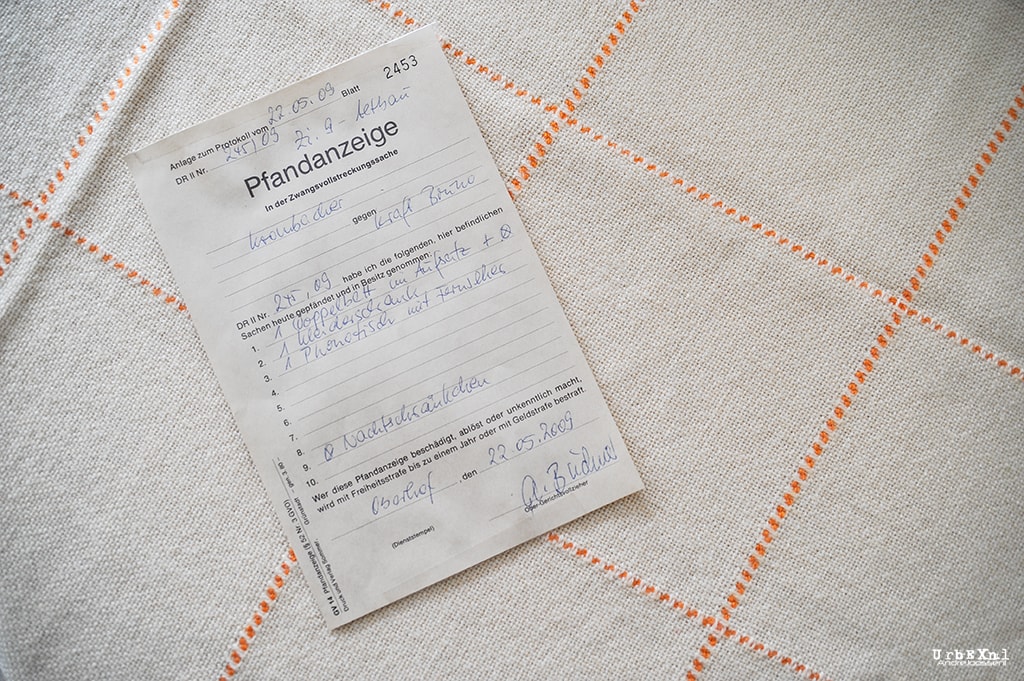 2453
Anlage zum Protokoll vom 22.05.09 Blatt
DR II Nr. 245/09 Zi. 9 - Altbau
Pfandanzeige
In der Zwangsvollstreckungssache
Krombacher gegen Kraft Bruno
DR II Nr. 245, 09 habe ich die folgenden, hier befindlichen
Sachen heute gepfändet und in Besitz genommen:
1. 1 Doppelbett m. Aufsatz + ⊗
2. 1 Kleiderschrank
3. 1 Phonotisch mit Fernseher
4.
5.
6.
7.
8.
9. ⊗ Nachtschränkchen
10.
Wer diese Pfandanzeige beschädigt, ablöst oder unkenntlich macht,
wird mit Freiheitsstrafe bis zu einem Jahr oder mit Geldstrafe bestraft.
Oberhof, den 22.05.2009
(Dienststempel)
Ober-Gerichtsvollzieher
GV 14 Pfandanzeige (§ 52 Nr. 3 GVO)
Druck und Verlag Sommer, Grünstadt
UrbEXnl